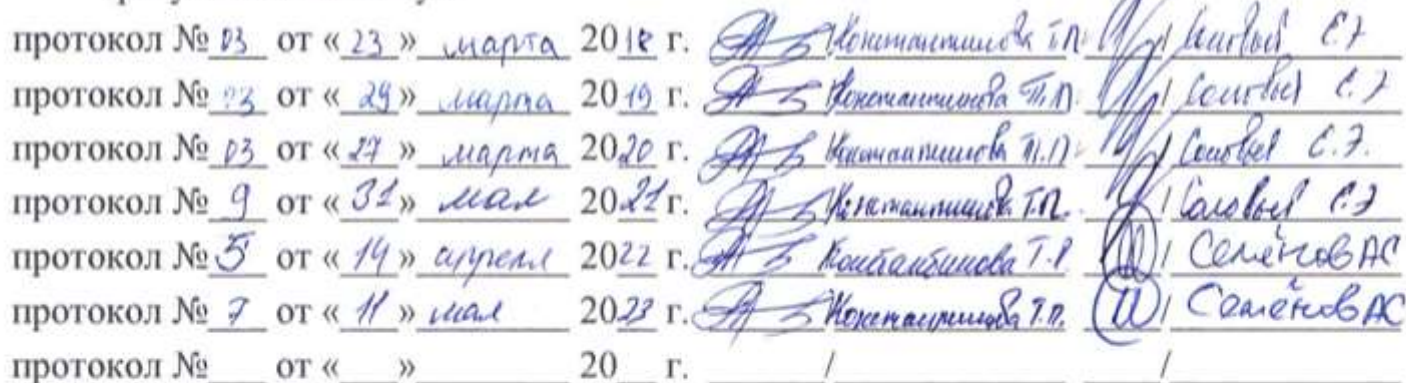 протокол № 03 от « 23 » марта 2018 г. /Константинова Т.П. / Соловьев С.Э
протокол № 03 от « 29 » марта 2019 г. Константинова Т.П. / Соловьев С.Э
протокол № 03 от « 27 » марта 2020 г. Константинова Т.П. / Соловьев С.Э.
протокол № 9 от « 31 » мая 2021 г. Константинова Т.П. / Соловьев С.Э
протокол № 5 от « 14 » апреля 2022 г. Константинова Т.П / Семёнов АС
протокол № 7 от « 11 » мая 2023 г. Константинова Т.П. / Семёнов АС
протокол № ___ от « ___ » ______ 20__ г. ______/______ ____/______